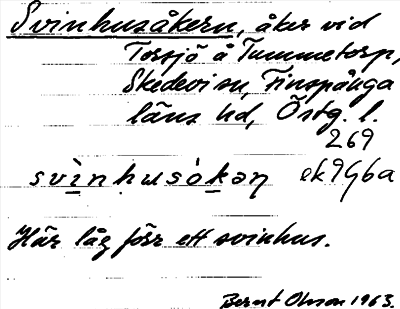 Svinhusåkern, åker vid
Torsjö å Tummetorp,
Skedevi sn, Finspånga
läns hd, Östg. l.
269
svìnhusòkəṇ ek 946a
Här låg förr ett svinhus.
Bernt Olsson 1963.